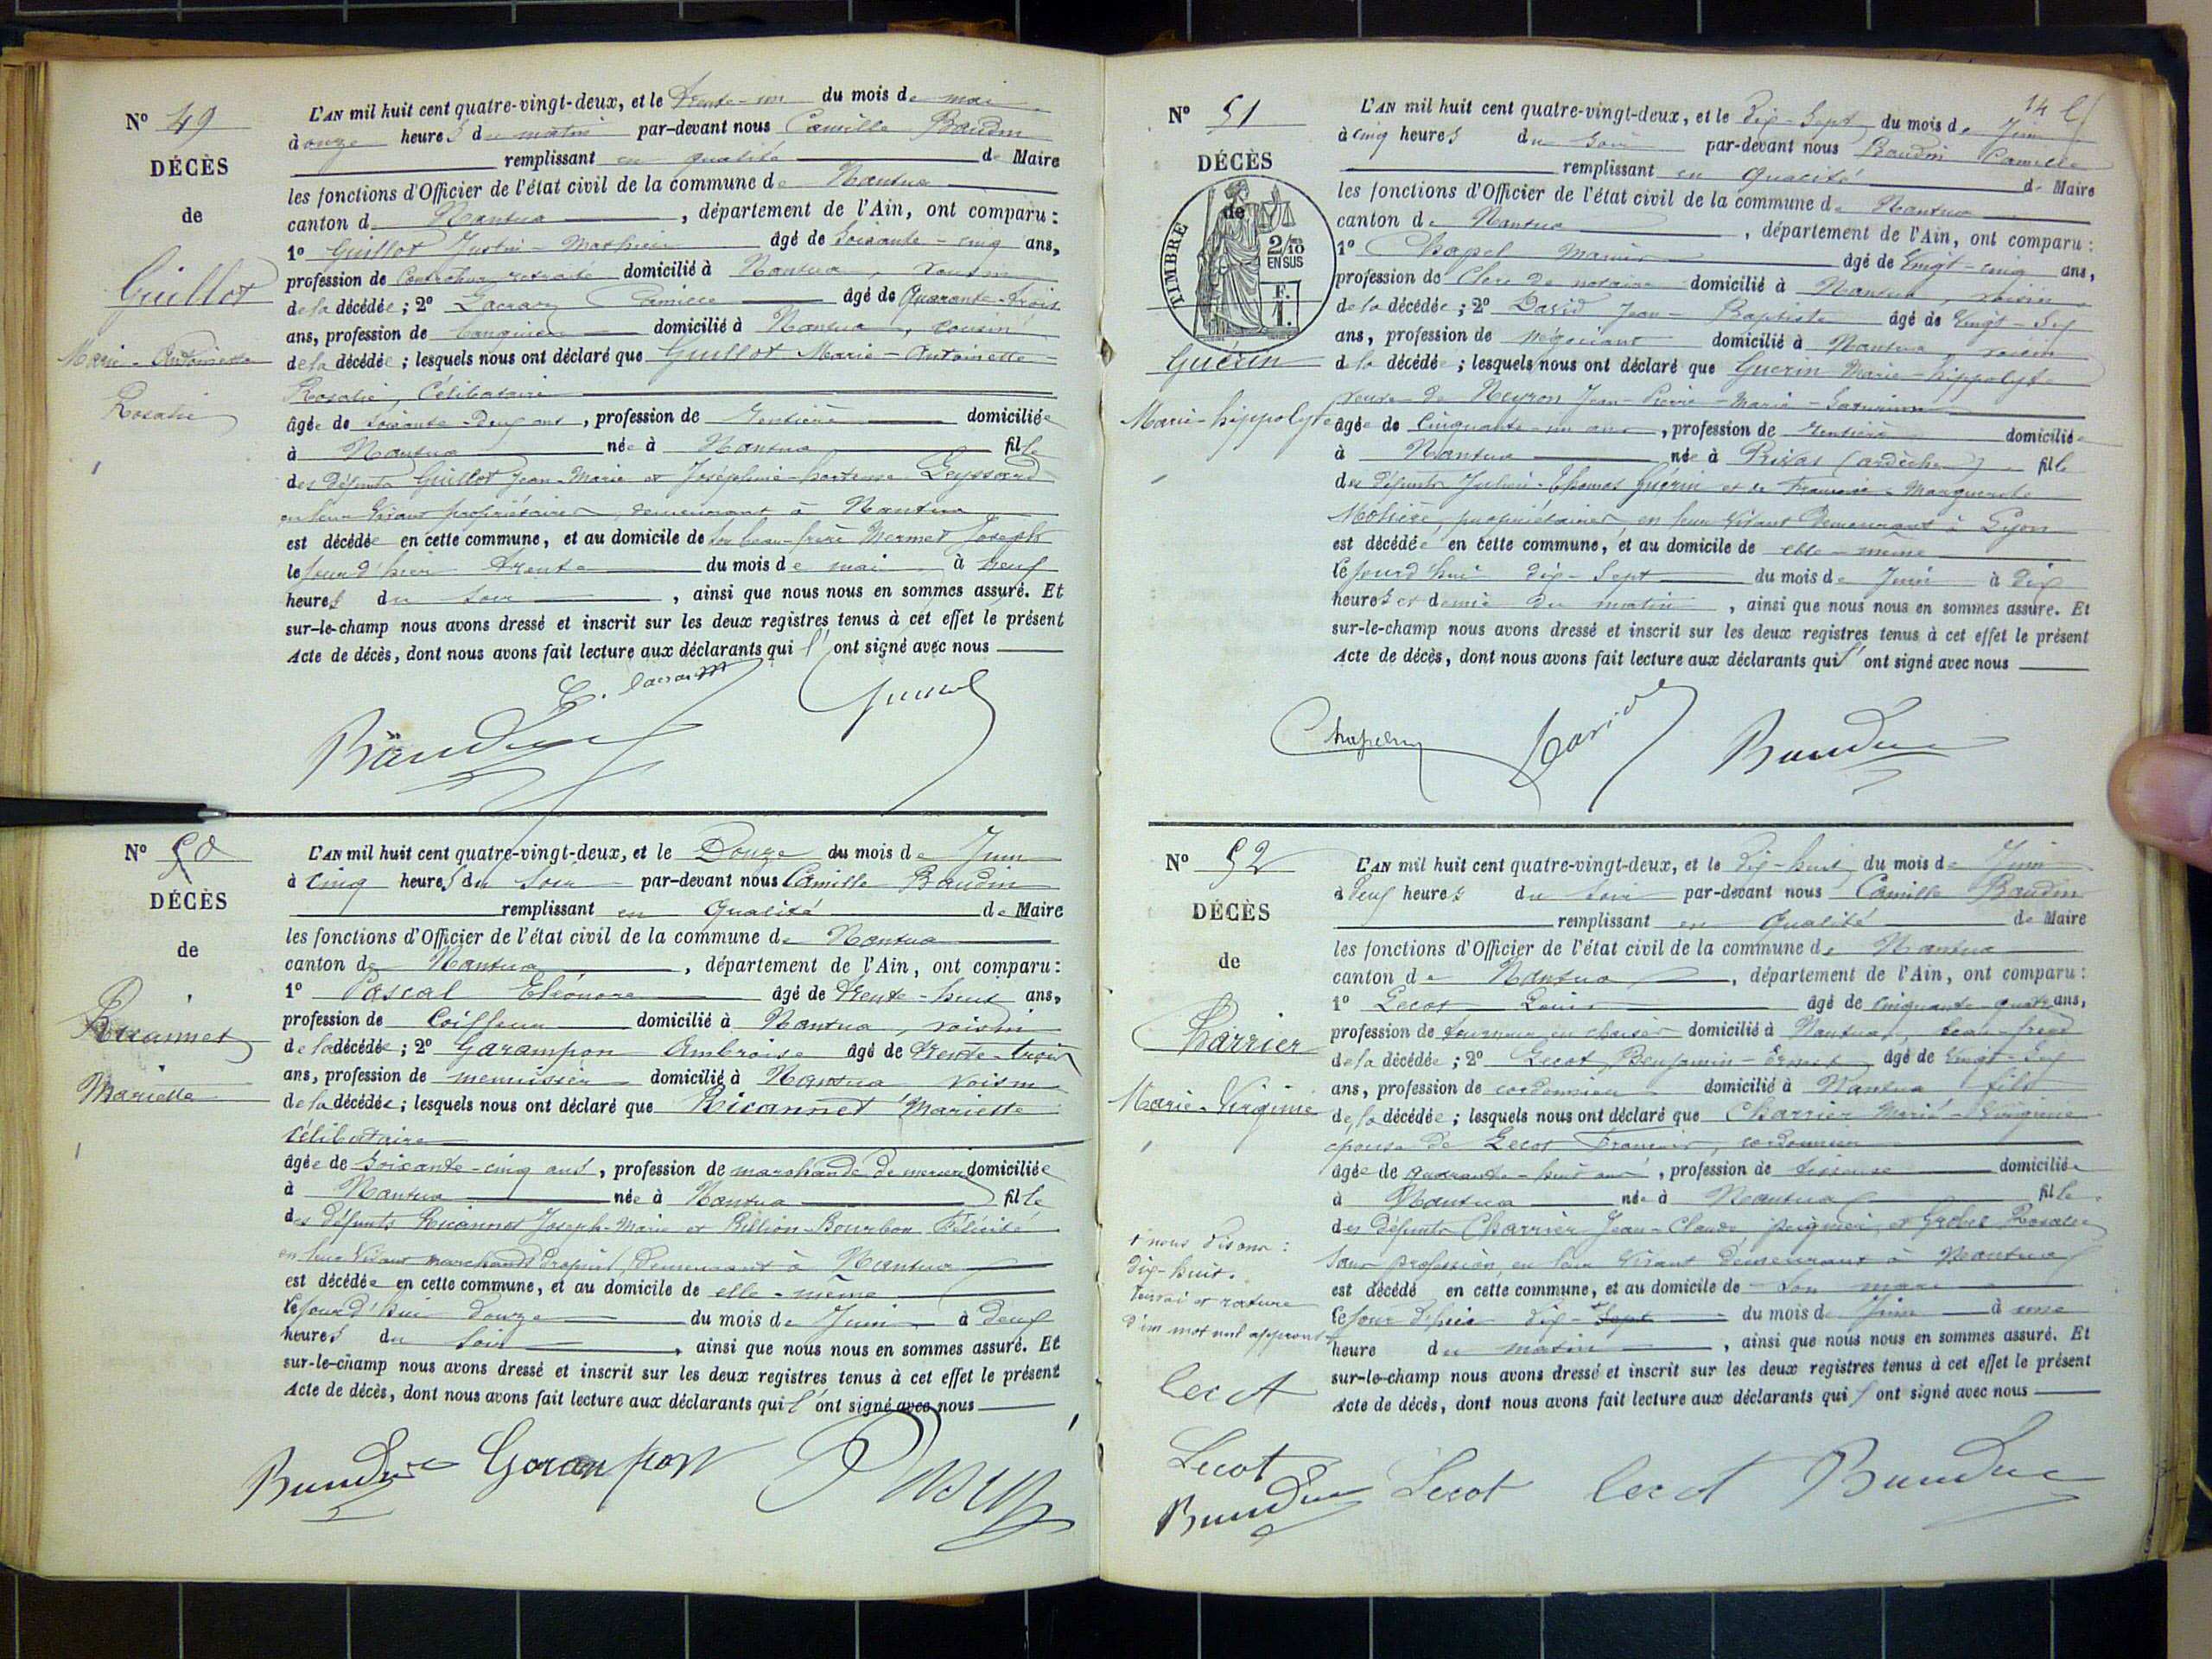 N° 49
DÉCÈS
de
Guillot
Marie-Antoinette
Rosalie
L'AN mil huit cent quatre-vingt-deux, et le trente-un du mois de mai
à onze heures du matin par-devant nous Camille Baudin
remplissant en qualité de Maire
les fonctions d'Officier de l'état civil de la commune de Nantua
canton de Nantua, département de l'Ain, ont comparu :
1° Guillot Justin-Mathieu âgé de soixante-cinq ans,
profession de Controleur retraité domicilié à Nantua, cousin
de la décédée ; 2° Camille âgé de Quarante-trois
ans, profession de banquier domicilié à Nantua, cousin
de la décédée ; lesquels nous ont déclaré que Guillot Marie-Antoinette
Rosalie, Célibataire
âgée de soixante-deux ans, profession de Rentière domiciliée
à Nantua née à Nantua fille
des défunts Guillot Jean-Marie et Joséphine-hortense Leyssard
en leur vivant propriétaires, demeurant à Nantua
est décédée en cette commune, et au domicile de son beau-frère Mermet Joseph
le jour d'hier trente du mois de mai à neuf
heures du soir, ainsi que nous nous en sommes assuré. Et
sur-le-champ nous avons dressé et inscrit sur les deux registres tenus à cet effet le présent
Acte de décès, dont nous avons fait lecture aux déclarants qui l'ont signé avec nous
Baudin
N° 50
DÉCÈS
de
Ricannet
Mariette
L'AN mil huit cent quatre-vingt-deux, et le Douze du mois de Juin
à Cinq heures du soir par-devant nous Camille Baudin
remplissant en Qualité de Maire
les fonctions d'Officier de l'état civil de la commune de Nantua
canton de Nantua, département de l'Ain, ont comparu :
1° Pascal Eléonore âgé de Trente-huit ans,
profession de Coiffeur domicilié à Nantua, voisin
de la décédée ; 2° Garampon Ambroise âgé de Trente-trois
ans, profession de menuisier domicilié à Nantua voisin
de la décédée ; lesquels nous ont déclaré que Ricannet Mariette
Célibataire
âgée de Soixante-cinq ans, profession de marchande de mercerie domiciliée
à Nantua née à Nantua fille
des défunts Ricannet Joseph-Marie et Billion-Bourbon Félicité
en leur vivant marchands drapiers, Demeurant à Nantua
est décédée en cette commune, et au domicile de elle-même
le jourd'hui douze du mois de Juin à deux
heures du soir, ainsi que nous nous en sommes assuré. Et
sur-le-champ nous avons dressé et inscrit sur les deux registres tenus à cet effet le présent
Acte de décès, dont nous avons fait lecture aux déclarants qui l'ont signé avec nous
Baudin Garampon
14
N° 51
DÉCÈS
de
TIMBRE
2/10 EN SUS
F. 1.
Guérin
Marie-hippolyte
L'AN mil huit cent quatre-vingt-deux, et le Dix-Sept du mois de Juin
à cinq heures du soir par-devant nous Baudin Camille
remplissant en Qualité de Maire
les fonctions d'Officier de l'état civil de la commune de Nantua
canton de Nantua, département de l'Ain, ont comparu :
1° Chapel Marius âgé de Vingt-cinq ans,
profession de Clerc de notaire domicilié à Nantua, voisin
de la décédée ; 2° David Jean-Baptiste âgé de Vingt-Six
ans, profession de négociant domicilié à Nantua voisin
de la décédée ; lesquels nous ont déclaré que Guérin Marie-hippolyte
veuve de Neyron Jean-Pierre-Marie-Saturnin
âgée de Cinquante-un ans, profession de rentière domiciliée
à Nantua née à Privas (ardèche) fille
des défunts Julien-Thomas Guérin et de Françoise-Marguerite
Molière, propriétaires, en leur vivant demeurant à Lyon
est décédée en cette commune, et au domicile de elle-même
le jourd'hui dix-Sept du mois de Juin à Dix
heures et demie du matin, ainsi que nous nous en sommes assuré. Et
sur-le-champ nous avons dressé et inscrit sur les deux registres tenus à cet effet le présent
Acte de décès, dont nous avons fait lecture aux déclarants qui l'ont signé avec nous
Chapel David Baudin
N° 52
DÉCÈS
de
Charrier
Marie-Virginie
L'AN mil huit cent quatre-vingt-deux, et le Dix-huit du mois de Juin
à Deux heures du soir par-devant nous Camille Baudin
remplissant en Qualité de Maire
les fonctions d'Officier de l'état civil de la commune de Nantua
canton de Nantua, département de l'Ain, ont comparu :
1° Lecot Louis âgé de cinquante-quatre ans,
profession de tourneur en chaises domicilié à Nantua, beau-frère
de la décédée ; 2° Lecot Benjamin-Ernest âgé de Vingt-Six
ans, profession de cordonnier domicilié à Nantua fils
de la décédée ; lesquels nous ont déclaré que Charrier Marie-Virginie
épouse de Lecot François, cordonnier
âgée de quarante-huit ans, profession de tisseuse domiciliée
à Nantua née à Nantua fille
des défunts Charrier Jean-Claude peignier et Rosalie
sans profession, en leur vivant demeurant à Nantua
est décédé en cette commune, et au domicile de son mari
le jour d'hier dix-Sept du mois de Juin à une
heure du matin, ainsi que nous nous en sommes assuré. Et
sur-le-champ nous avons dressé et inscrit sur les deux registres tenus à cet effet le présent
Acte de décès, dont nous avons fait lecture aux déclarants qui l'ont signé avec nous
+ nous disons :
dix-huit.
renvoi et rature
d'un mot nul approuvé
lecot
Lecot
Baudin Lecot lecot Baudin